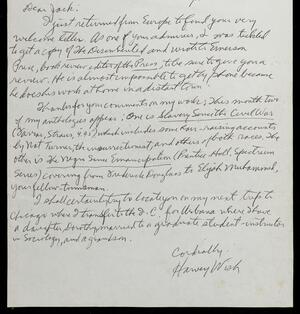 Dear Jack:
I just returned from Europe to find your very
welcome letter. As one of your admirers, I was tickled
to get a copy of the Disenchanted and wrote Emerson
Price, book review editor of the Press, to be sure to give you a
review. He is almost impossible to get by phone because
he does his work at home in a distant town.
Thanks for your comments on my work; this month two
of my anthologies appear: One is Slavery Since the Civil War
(Farrar, Straus, 4.95) which includes some hair-raising accounts
by Nat Turner, the insurrectionist, and others of both races. The
other is The Negro Since Emancipation (Prentice-Hall, Spectrum
Series) covering from Frederick Douglass to Elijah Muhammad,
your fellow townsman.
I shall certainly try to locate you on my next trip to
Chicago where I transfer to the I.C. for Urbana where I have
a daughter, Dorothy married to a graduate student-instructor
in Sociology, and a grandson.
Cordially,
Harvey Wish